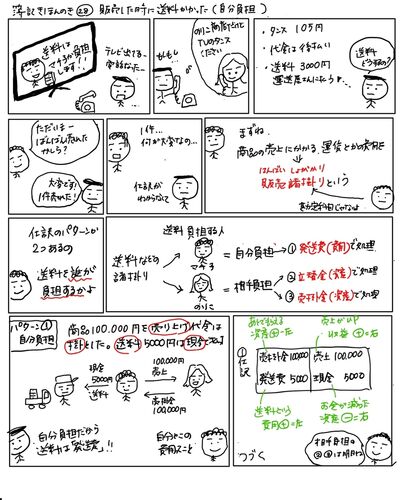 簿記でほんのき㉘ 販売した時に送料がかかった(自分負担)
送料は
マチ子が負担
します!!
テレビ
電話だー
もしもし
のりこ商店だけど
TVのタンス
ください
・タンス 10万円
・代金は後払い
・送料 3000円
運送屋さんに払う
送料
どうするの?
ただいまー
ばんばん売れた
かしら?
大変です!
1件売れた!
1件…
何が大変なの…
仕訳が
わからなくて
まずね
商品の売上にかかる、運賃とかの費用を
はんばい しょがかり
販売諸掛りという
勘定科目じゃないよ
仕訳のパターンが
2つあるの
送料を誰が
負担するかよ
送料負担する人
送料などの
諸掛り
マチ子
=自分負担→①発送費(費用)で処理
のりこ
=相手負担
②立替金(資産)で処理
③売掛金(資産)で処理
パターン①
自分負担
商品100.000円を売り上げ代金は
掛けとした。送料5000円は現金で支払
現金
5000円
送料
100.000円
売上
売掛金
100.000円
自分負担だから
送料は「発送費」!!
自分とこの
費用ってこと
あとでもらえる
資産⊕=左
売上がUP
収益⊕=右
①仕訳
売掛金 100000
売上 100.000
発送費 5000
現金 5000
送料という
費用⊕=左
お金が減った
資産⊖=右
つづく
相手負担の
②③は明日に